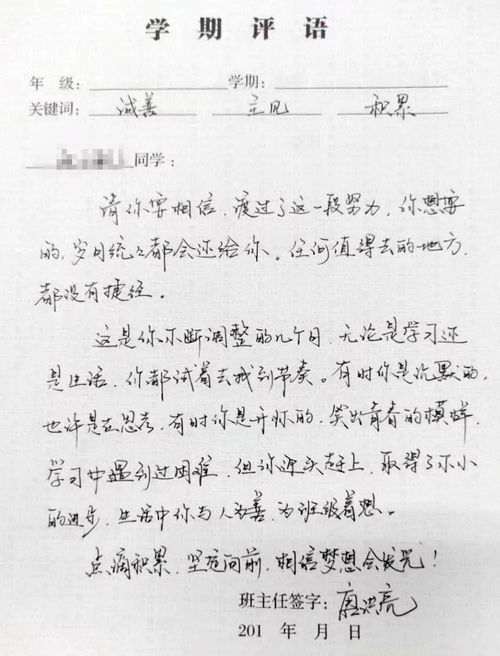 学期评语
年 级: 学期:
关键词: 诚善 主见 积累
同学:
请你要相信,渡过了这一段努力,你想要
的,岁月统统都会还给你。任何值得去的地方,
都没有捷径。
这是你不断调整的几个月,无论是学习还
是生活,你都试着去找到节奏。有时你是沉默的,
也许是在思考,有时你是开怀的,笑出青春的模样,
学习中遇到过困难,但你迎头赶上,取得了不小
的进步,生活中你与人为善,为班级着想。
点滴积累,坚定向前,相信梦想会发光!
班主任签字:唐洪亮
201 年 月 日